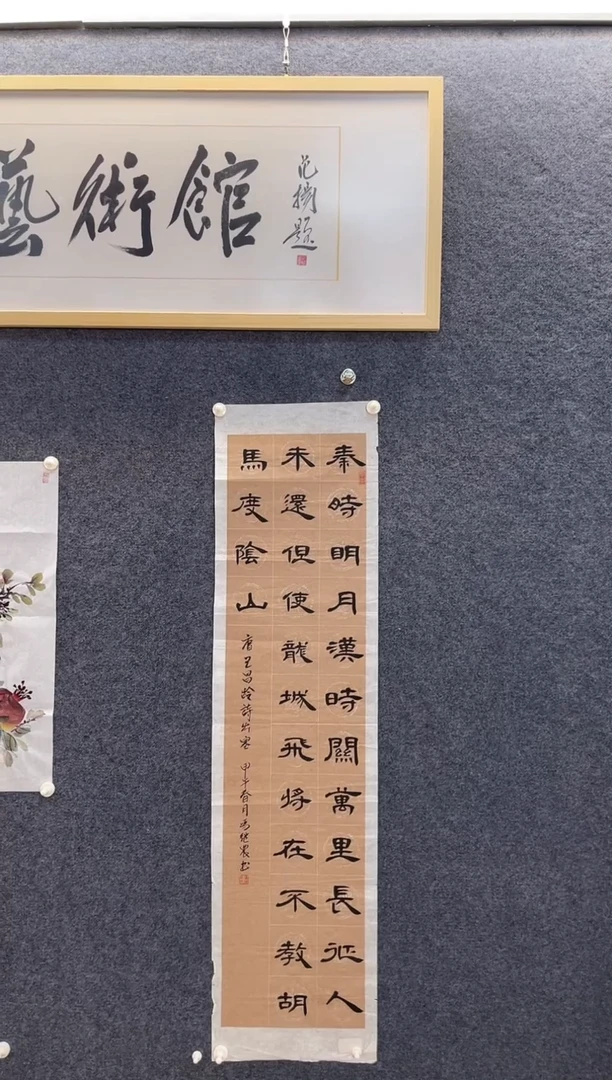 藝術館
題
秦時明月漢時關萬里長征人
未還但使龍城飛將在不教胡
馬度陰山
唐王昌齡詩出塞 甲午春月
書